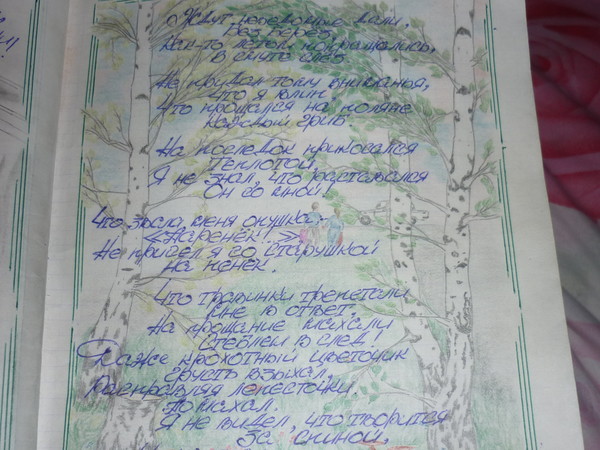 Живут, непевожные дали,
Без берёз,
Как-то летом, попрощались,
В смуте слёз
Не придал тому вниманья,
Что я влип
Что прощался на поляне
Каждый гриб
На последок прикасался
Теплотой,
Я не знал, что расставался
Он со мной,
Что звала, меня опушка -
«Паренёк!!»
Не присел я со старушкой
На пенёк.
Что травинки трепетали
Мне в ответ,
На прощание махали
Стеблем в след!
Даже крохотный цветочик
Грусть вздыхал,
Расправляя лепесточки,
По махал.
Я не видел, что творится
За спиной,